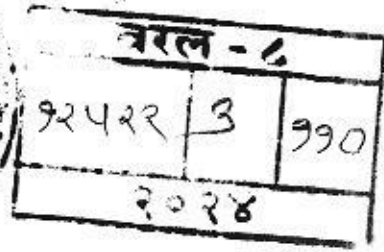 बरल - ८
१२५२२ ३ ११०
२०२४